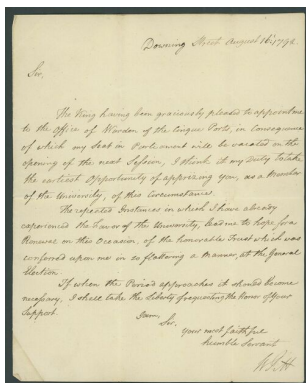 Downing Street August 16th 1792.
Sir,
The King having been graciously pleased to appoint me
to the Office of Warden of the Cinque Ports, in Consequence
of which my Seat in Parliament will be vacated in the
opening of the next Session, I think it my Duty to take
the earliest Opportunity of apprizing you, as a Member
of the University, of this Circumstance.
The repeated Instances in which I have already
experienced the favor of the University, lead me to hope for a
Renewal on this Occasion, of the honorable Trust which was
conferred upon me in so flattering a Manner, at the General
Election.
If when the Period approaches it should become
necessary, I shall take the Liberty of requesting the Honor of your
Support.
I am,
Sir,
your most faithful
humble Servant
W Pitt